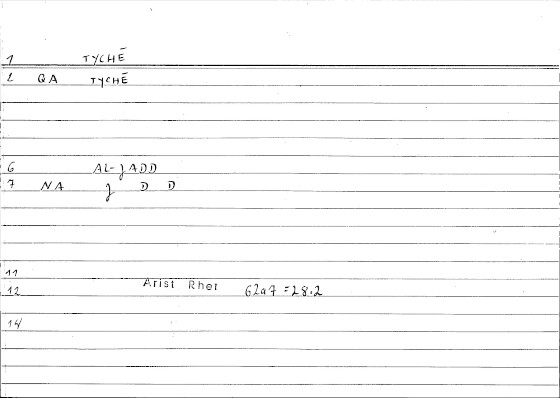 1 TYCHĒ
2 QA TYCHĒ
6 AL-JADD
7 NA J D D
11
12 Arist Rhet 62a7 =28.2
14